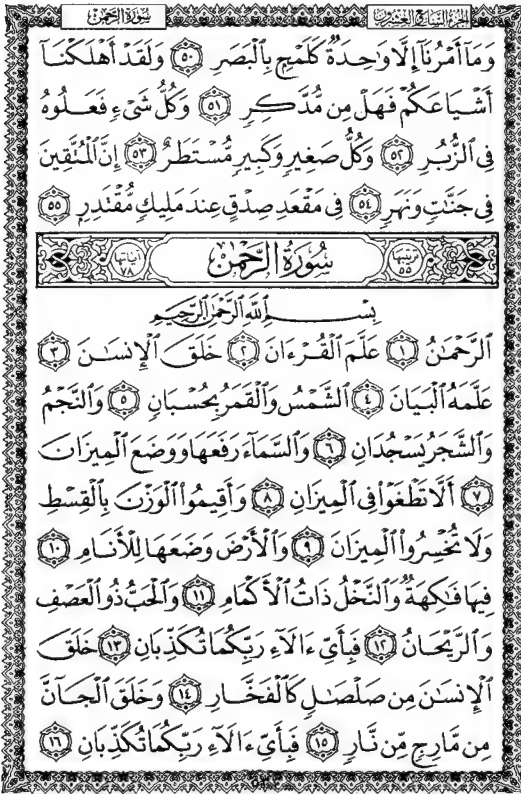 سُورَةُ الرَّحْمَٰن الجُزْءُ السَّابِعُ وَالعِشْرُونَ
وَمَآ أَمْرُنَآ إِلَّا وَٰحِدَةٌ كَلَمْحٍۭ بِٱلْبَصَرِ ٥٠ وَلَقَدْ أَهْلَكْنَآ
أَشْيَاعَكُمْ فَهَلْ مِن مُّدَّكِرٍ ٥١ وَكُلُّ شَىْءٍ فَعَلُوهُ
فِى ٱلزُّبُرِ ٥٢ وَكُلُّ صَغِيرٍ وَكَبِيرٍ مُّسْتَطَرٌ ٥٣ إِنَّ ٱلْمُتَّقِينَ
فِى جَنَّٰتٍ وَنَهَرٍ ٥٤ فِى مَقْعَدِ صِدْقٍ عِندَ مَلِيكٍ مُّقْتَدِرٍۭ ٥٥
ترتيبها ٥٥ سُورَةُ الرَّحْمَٰن آياتها ٧٨
بِسْمِ ٱللَّهِ ٱلرَّحْمَٰنِ ٱلرَّحِيمِ
ٱلرَّحْمَٰنُ ١ عَلَّمَ ٱلْقُرْءَانَ ٢ خَلَقَ ٱلْإِنسَٰنَ ٣
عَلَّمَهُ ٱلْبَيَانَ ٤ ٱلشَّمْسُ وَٱلْقَمَرُ بِحُسْبَانٍ ٥ وَٱلنَّجْمُ
وَٱلشَّجَرُ يَسْجُدَانِ ٦ وَٱلسَّمَآءَ رَفَعَهَا وَوَضَعَ ٱلْمِيزَانَ
٧ أَلَّا تَطْغَوْا۟ فِى ٱلْمِيزَانِ ٨ وَأَقِيمُوا۟ ٱلْوَزْنَ بِٱلْقِسْطِ
وَلَا تُخْسِرُوا۟ ٱلْمِيزَانَ ٩ وَٱلْأَرْضَ وَضَعَهَا لِلْأَنَامِ ١٠
فِيهَا فَٰكِهَةٌ وَٱلنَّخْلُ ذَاتُ ٱلْأَكْمَامِ ١١ وَٱلْحَبُّ ذُو ٱلْعَصْفِ
وَٱلرَّيْحَانُ ١٢ فَبِأَىِّ ءَالَآءِ رَبِّكُمَا تُكَذِّبَانِ ١٣ خَلَقَ
ٱلْإِنسَٰنَ مِن صَلْصَٰلٍ كَٱلْفَخَّارِ ١٤ وَخَلَقَ ٱلْجَآنَّ
مِن مَّارِجٍ مِّن نَّارٍ ١٥ فَبِأَىِّ ءَالَآءِ رَبِّكُمَا تُكَذِّبَانِ ١٦